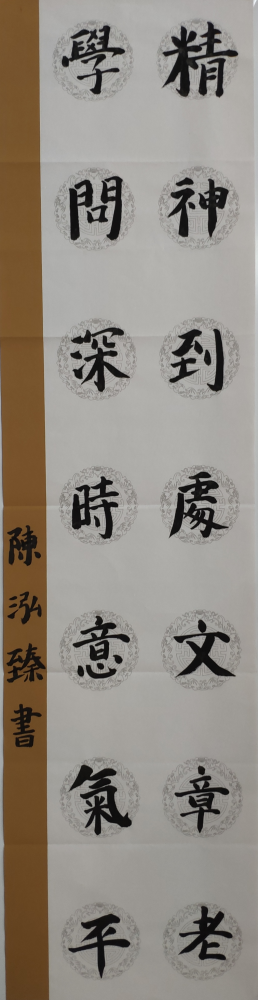 精神到處文章老
學問深時意氣平
陳泓臻書